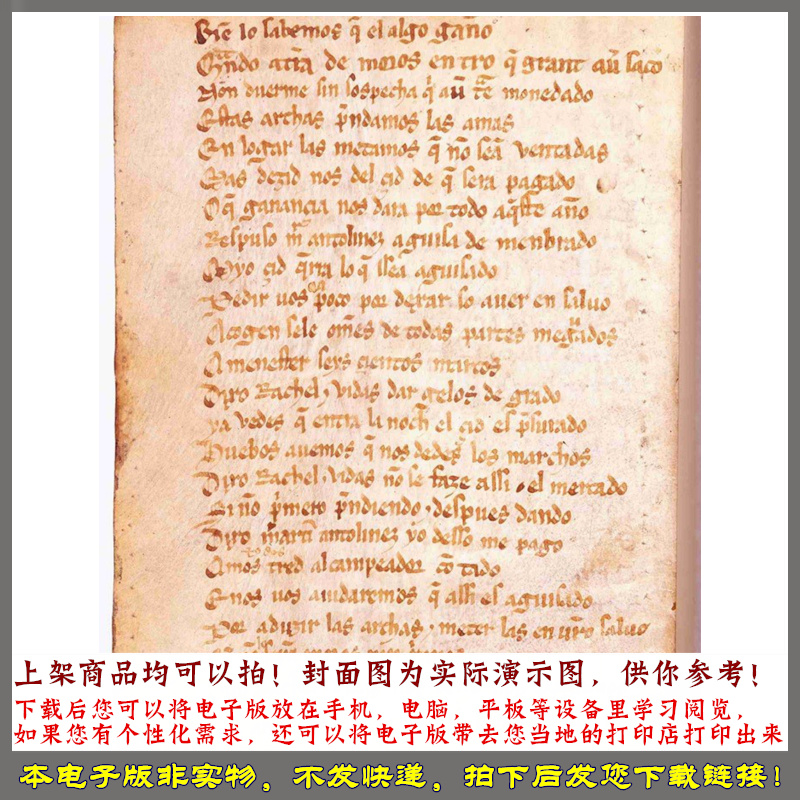 Bie lo sabemos q̃ el algo gaño
Quãdo a tr̃a de moros entro q̃ grant au̾ saco
Non duerme sin sospecha q̃ au̾ trae monedado
Estas archas p̃ndamos las amas
En logar las metamos q̃ nõ seã ventadas
Mas dezid nos del çid de q̃ sera pagado
O q̃ ganançia nos dara por todo aq̃ste año
Respuso m̃ antolinez a guisa de menbrado
Myo çid q̃rra lo q̃ ssea aguisado
Pedir uos poco por dexar so auer en saluo
Acogen sele om̃es de todas partes meguados
A menester seys çientos marcos
Dixo Rachel, vidas dar gelos de grado
ya vedes q̃ entra la noch el çid es p̃surado
Huebos auemos q̃ nos dedes los marchos
Dixo Rachel, vidas nõ se faze assi el mercado
Si nõ p̃mero p̃ndiendo, despues dando
Dixo martĩ antolinez yo desso me pago
Amos tred al campeador cõtado
E nos uos aiudaremos q̃ assi es aguisado
Por aduzir las archas, meter las en uro saluo
上架商品均可以拍！封面图为实际演示图，供你参考！
下载后您可以将电子版放在手机，电脑，平板等设备里学习阅览，
如果您有个性化需求，还可以将电子版带去您当地的打印店打印出来
本电子版非实物，不发快递，拍下后发您下载链接！